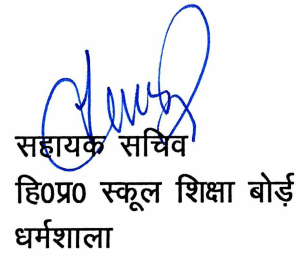 सहायक सचिव
हि0प्र0 स्कूल शिक्षा बोर्ड़
धर्मशाला